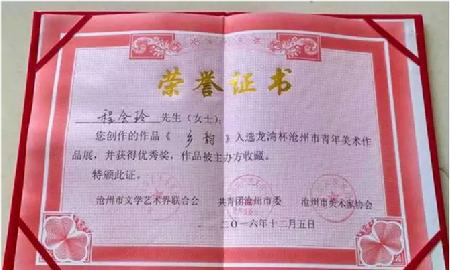 荣誉证书
程金玲 先生(女士):
您创作的作品《乡韵》入选龙湾杯沧州市青年美术作
品展,并获得优秀奖,作品被主办方收藏。
特颁此证。
沧州市文学艺术界联合会 共青团沧州市委 沧州市美术家协会
二〇一六年十二月五日